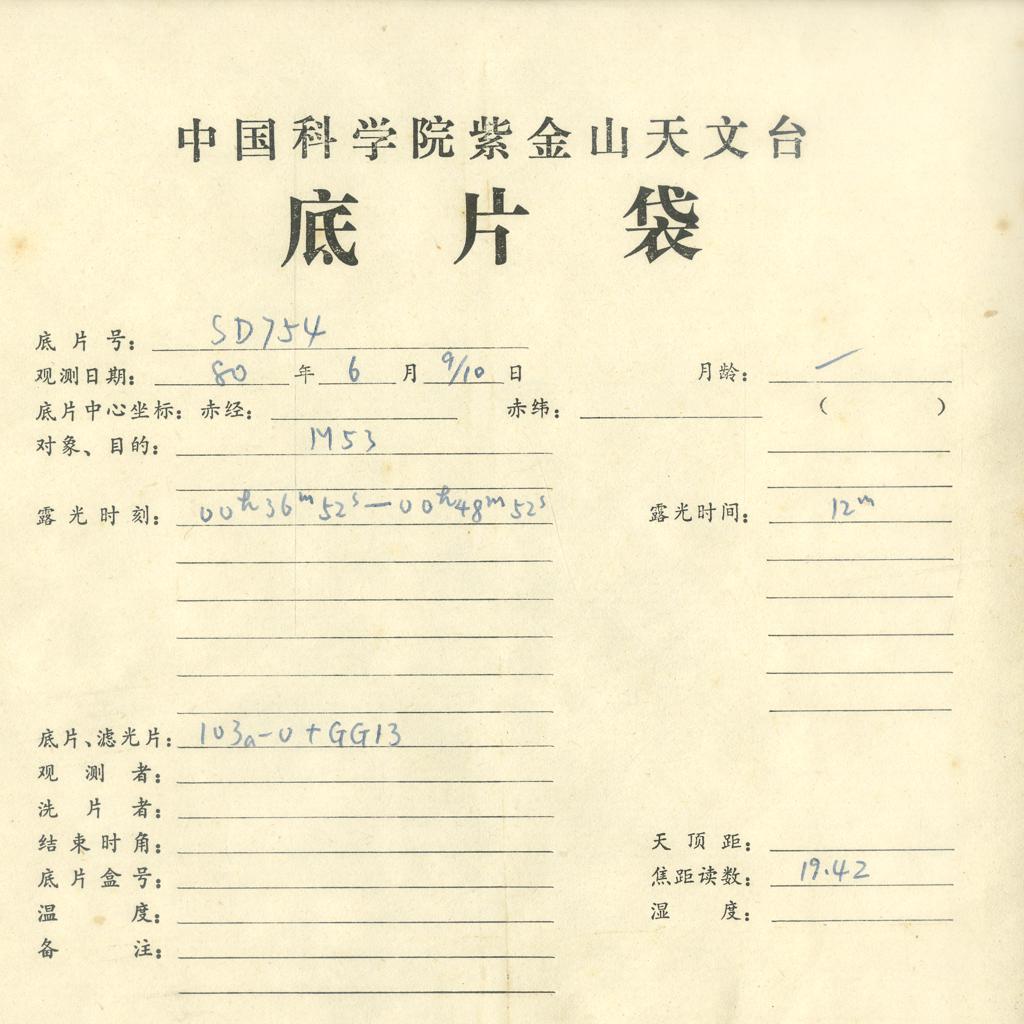 中国科学院紫金山天文台
底片袋
底片号: SD754
观测日期: 80 年 6 月 9/10 日 月龄: —
底片中心坐标: 赤经: 赤纬: ( )
对象、目的: M53
露光时刻: 00ʰ36ᵐ52ˢ—00ʰ48ᵐ52ˢ 露光时间: 12ᵐ
底片、滤光片: 103a-0+GG13
观测者:
洗片者:
结束时角: 天顶距:
底片盒号: 焦距读数: 19.42
温度: 湿度:
备注: